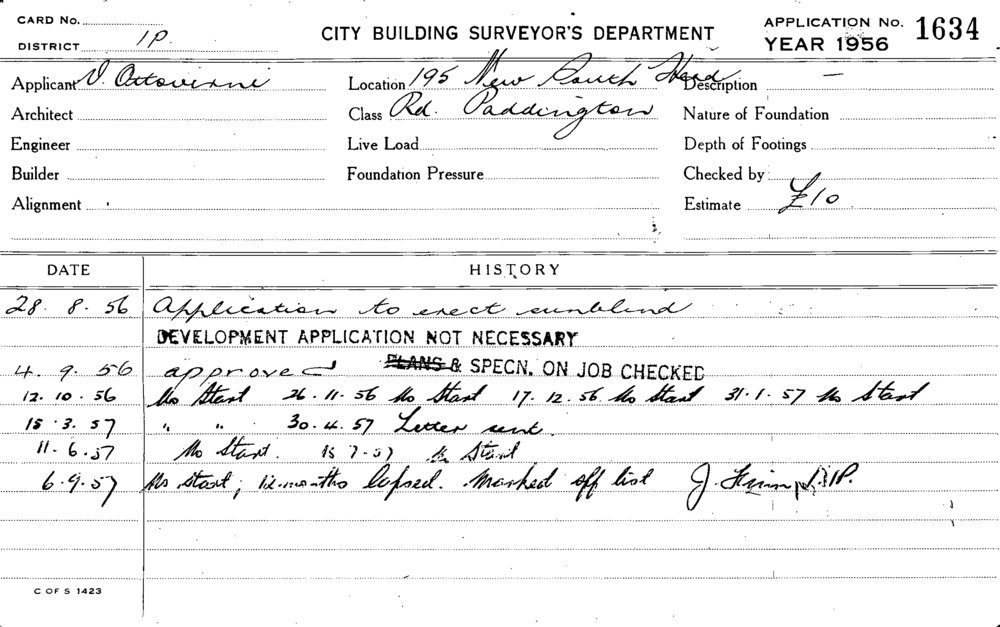 CARD No.
DISTRICT 1P.
CITY BUILDING SURVEYOR'S DEPARTMENT
APPLICATION No. 1634
YEAR 1956
Applicant V. Ottovinni Location 195 New South Head Description —
Architect Class Rd. Paddington Nature of Foundation
Engineer Live Load Depth of Footings
Builder Foundation Pressure Checked by
Alignment Estimate £10
DATE HISTORY
28. 8. 56 Application to erect sunblind
DEVELOPMENT APPLICATION NOT NECESSARY
4. 9. 56 approved PLANS & SPECN. ON JOB CHECKED
12. 10. 56 No Start 26. 11. 56 No Start 17. 12. 56 No Start 31. 1. 57 No Start
15. 3. 57 " " 30. 4. 57 Letter sent.
11. 6. 57 No Start. 15 7. 57 No Start
6. 9. 57 No start; 12 months lapsed. Marked off list J. 1P.
C OF S 1423